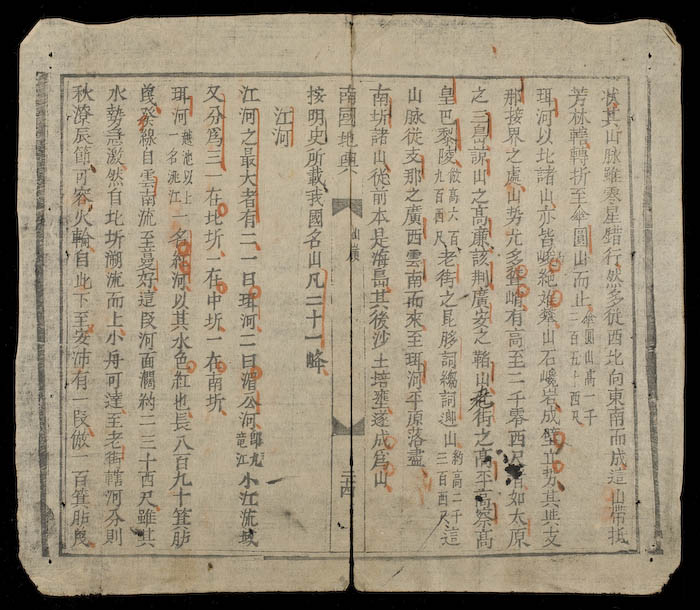 狀其山脉雖零星錯行然多從西北向東南而成這山帶抵
芳林轄轉折至傘圓山而止傘圓山高一千二百五十西尺
珥河以北諸山亦皆峻絶难攀山石巉岩成壁立势其與支
那接界之處山势尤多聳峭有高至二千零西尺者如太原
之三島諒山之高廉該荆廣安之鞈山老街之高平高察高
皇巴黎陵做高六百九百西尺老街之昆朡詞縐詞𨗛山約高二千三百西尺這
山脉從支那之廣西雲南而來至珥河平原落盡
南圻諸山從前本是海島其後沙土培壅遂成爲山
南國地輿
山嶺
三四
按明史所載我國名山凡二十一峰
江河
江河之最大者有二一曰珥河二曰湄公河即九竜江水江流域
又分爲三一在北圻一在中圻一在南圻
珥河越池以上一名洮江一名紅河以其水色紅也長八百九十箕𦙫
幾發線自雲南流至曼好這段河面濶約二三十西尺雖其
水勢急激然自北圻溯流而上小舟可達至老街轄河分則
秋潦辰節可容火輪自此下至安沛有一段做一百箕𦙫幾